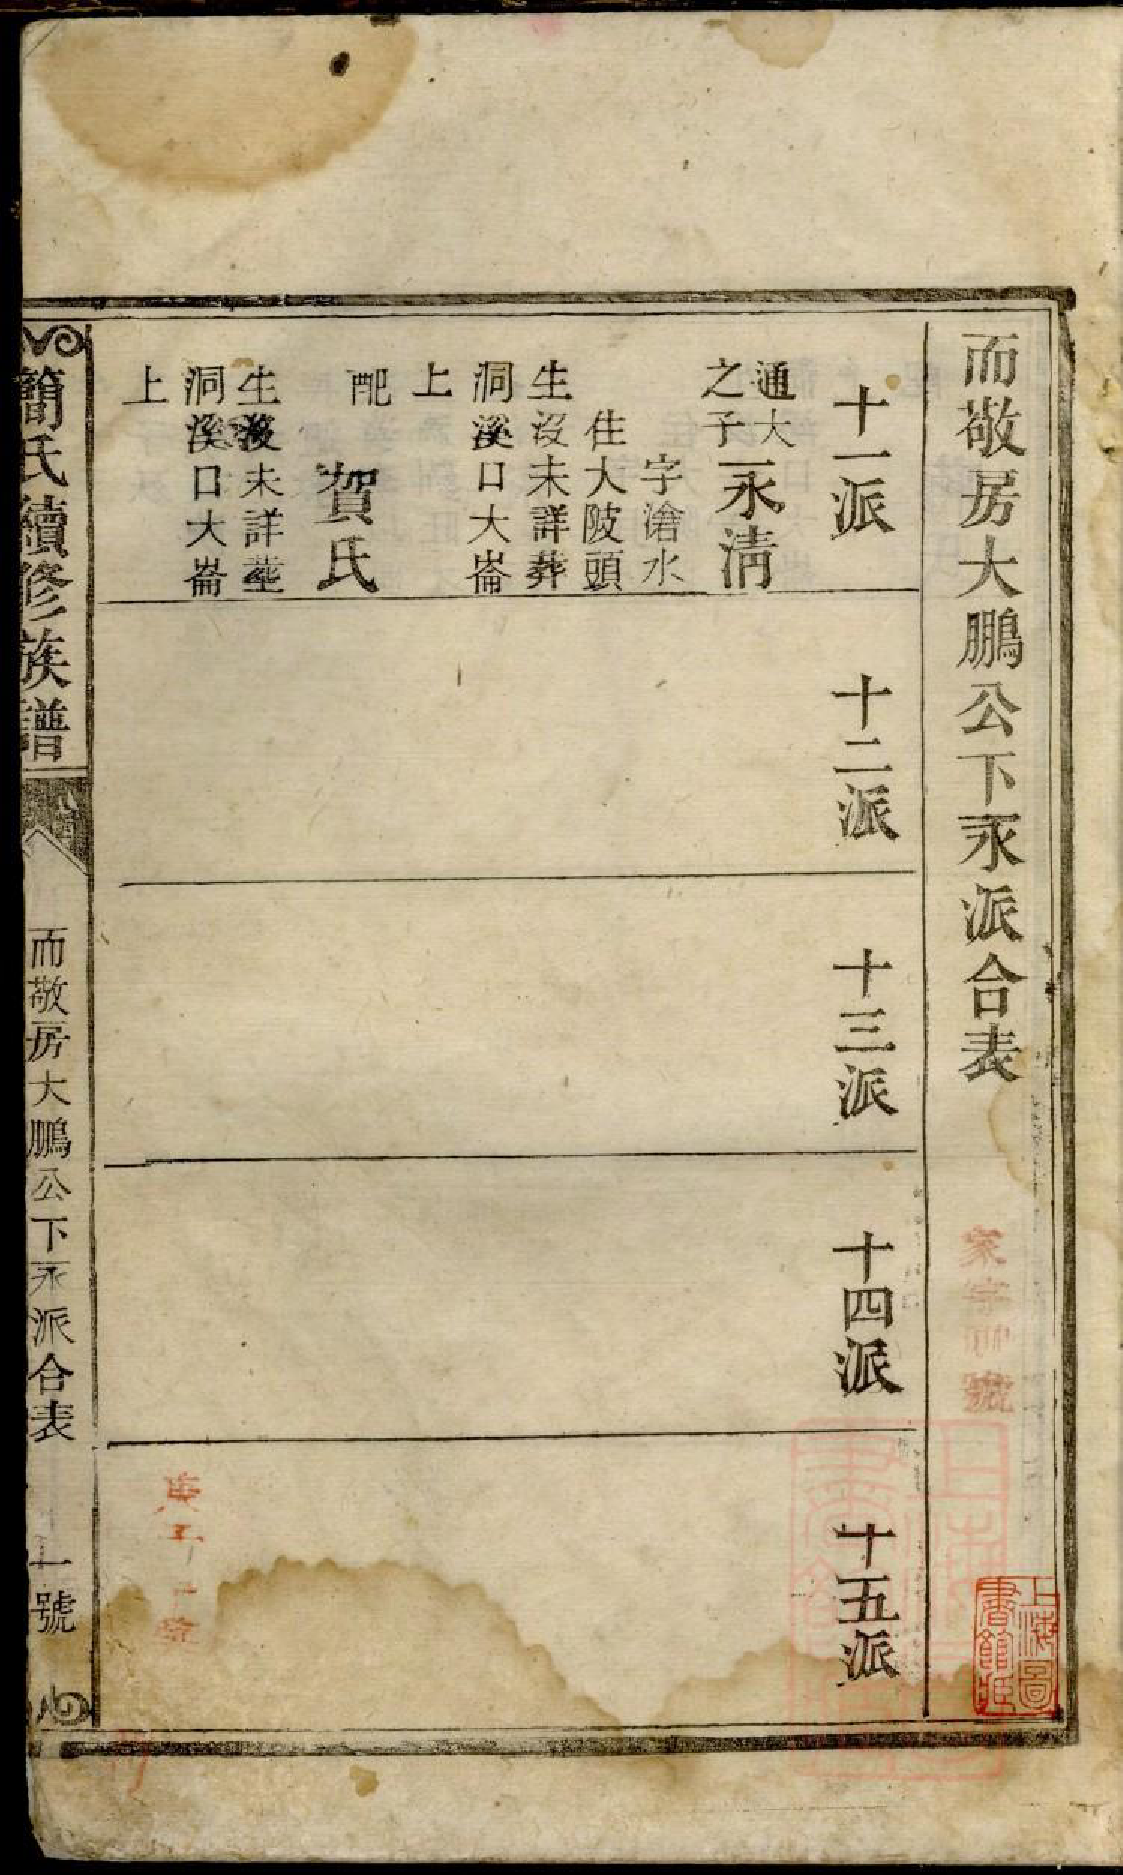 而敬房大鵬公下永派合表
十一派
十二派
十三派
十四派
十五派
通大
之子
永清
字滄水
住大陂頭
生沒未詳葬
洞溪口大崙
上
配
賀氏
生沒未詳塟
洞溪口大崙
上
簡氏續修族譜
而敬房大鵬公下永派合表
一號
上海圖
書館藏